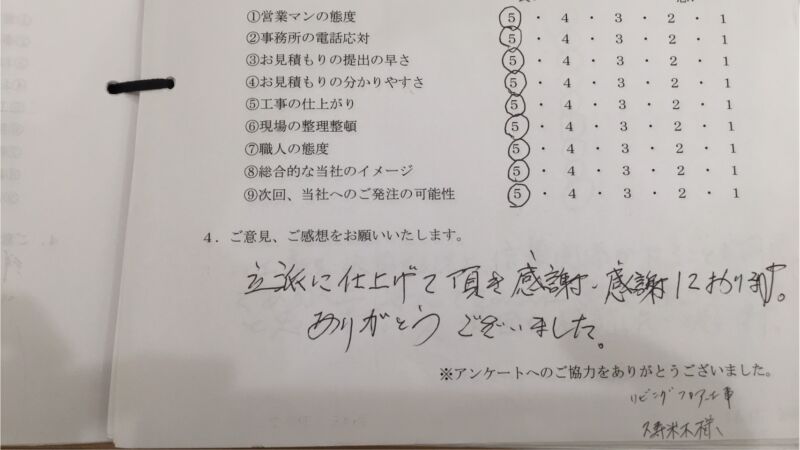 ①営業マンの態度 5・4・3・2・1
②事務所の電話応対 5・4・3・2・1
③お見積もりの提出の早さ 5・4・3・2・1
④お見積もりの分かりやすさ 5・4・3・2・1
⑤工事の仕上がり 5・4・3・2・1
⑥現場の整理整頓 5・4・3・2・1
⑦職人の態度 5・4・3・2・1
⑧総合的な当社のイメージ 5・4・3・2・1
⑨次回、当社へのご発注の可能性 5・4・3・2・1
4．ご意見、ご感想をお願いいたします。
立派に仕上げて頂き感謝、感謝しております。
ありがとうございました。
※アンケートへのご協力をありがとうございました。
リビングフロアー工事
様